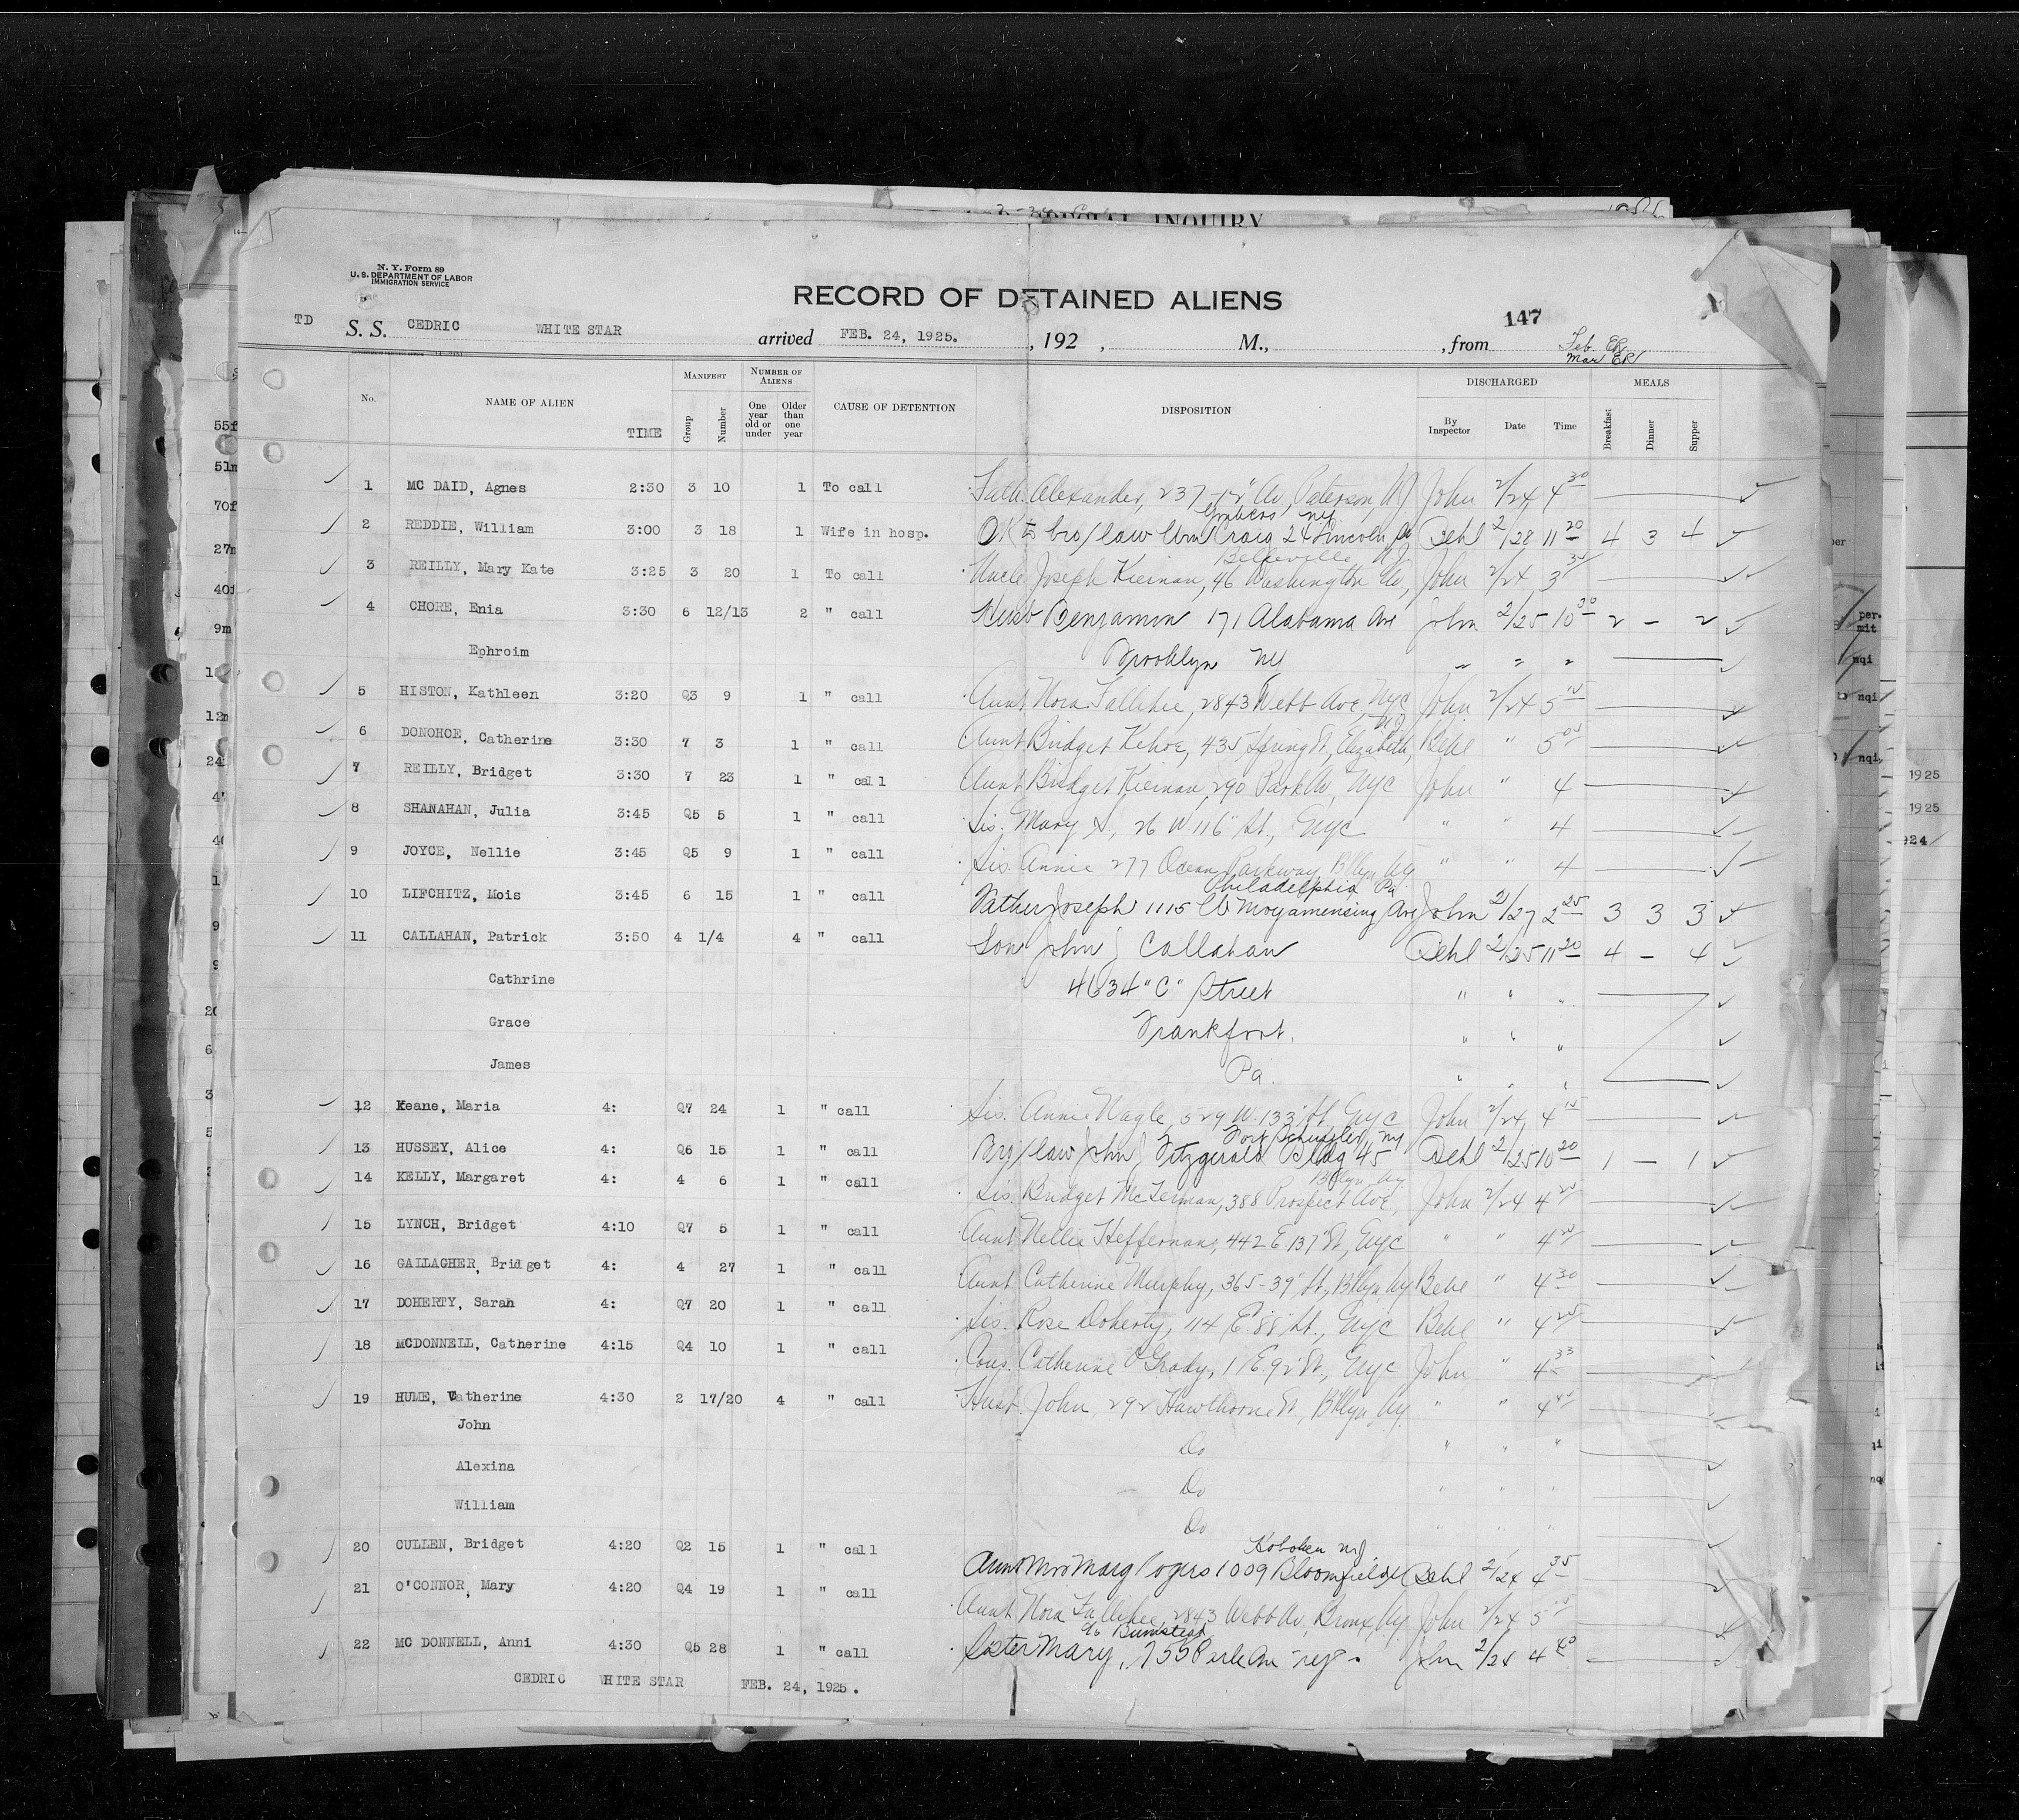 SPECIAL INQUIRY
N. Y. Form 89
U. S. DEPARTMENT OF LABOR
IMMIGRATION SERVICE
RECORD OF DETAINED ALIENS
147
TD S. S. CEDRIC WHITE STAR arrived FEB. 24, 1925. , 192 , M., , from Feb. ER
Mar ER
No. NAME OF ALIEN TIME MANIFEST Group Number NUMBER OF ALIENS One year old or under Older than one year CAUSE OF DETENTION DISPOSITION DISCHARGED By Inspector Date Time MEALS Breakfast Dinner Supper
1 MC DAID, Agnes 2:30 3 10 1 To call Fath. Alexander, 237 Av, Paterson, NJ John 2/24 4 30
Yonkers NY
2 REDDIE, William 3:00 3 18 1 Wife in hosp. OK to bro/law Wm Craig 24 Lincoln Behl 2/28 11 20 4 3 4
Belleville NJ
3 REILLY, Mary Kate 3:25 3 20 1 To call Uncle Joseph Kiernan, 46 Washington Av, John 2/24 3
4 CHORE, Enia 3:30 6 12/13 2 " call Husb Benjamin 171 Alabama Ave John 2/25 10 30 2 - 2
Ephroim Brooklyn NY " " "
5 HISTON, Kathleen 3:20 Q3 9 1 " call Aunt Nora Fallihee, 2843 Webb Ave, NYC John 2/24 5
NJ
6 DONOHOE, Catherine 3:30 7 3 1 " call Aunt Bridget Kehoe, 435 Spring St, Elizabeth, Behl " 5
7 REILLY, Bridget 3:30 7 23 1 " call Aunt Bridget Kiernan, 290 Park Av, NYC John " 4
8 SHANAHAN, Julia 3:45 Q5 5 1 " call Sis. Mary S., 26 W 116" St., NYC " " 4
9 JOYCE, Nellie 3:45 Q5 9 1 " call Sis. Annie 277 Ocean Parkway, Bklyn, NY " " 4
Philadelphia Pa
10 LIFCHITZ, Mois 3:45 6 15 1 " call Father Joseph 1115 W Moyamensing Ave John 2/27 2 25 3 3 3
11 CALLAHAN, Patrick 3:50 4 1/4 4 " call Son John J Callahan Behl 2/25 11 20 4 - 4
Cathrine 4634 "C" Street " " "
Grace Frankfort. " " "
James Pa. " " "
12 Keane, Maria 4: Q7 24 1 " call Sis. Annie Nagle, 529 W. 133" St, NYC John 2/24 4
Fort Schuyler, NY
13 HUSSEY, Alice 4: Q6 15 1 " call Bro/law John J Fitzgerald Bldg 45 Behl 2/25 10 20 1 - 1
Bklyn, NY
14 KELLY, Margaret 4: 4 6 1 " call Sis. Bridget McTernan, 388 Prospect Ave, John 2/24 4
15 LYNCH, Bridget 4:10 Q7 5 1 " call Aunt Nellie Heffernan, 442 E 137" St, NYC " " 4
16 GALLAGHER, Bridget 4: 4 27 1 " call Aunt Catherine Murphy, 365-39" St, Bklyn NY Behl " 4 30
17 DOHERTY, Sarah 4: Q7 20 1 " call Sis. Rose Doherty, 114 E. 88" St., NYC Behl " 4 25
18 MCDONNELL, Catherine 4:15 Q4 10 1 " call Cous. Catherine O'Grady, 1 E. 92" St, NYC John " 4 33
19 HUME, Catherine 4:30 2 17/20 4 " call Husb. John, 292 Hawthorne St, Bklyn, NY " " 4
John Do " " "
Alexina Do " " "
William Do " " "
Hoboken NJ
20 CULLEN, Bridget 4:20 Q2 15 1 " call Aunt Mrs Marg Rogers 1009 Bloomfield Behl 2/24 4 35
21 O'CONNOR, Mary 4:20 Q4 19 1 " call Aunt Nora Fallihee, 2843 Webb Av, Bronx, NY John 2/24 5
c/o Bumstead
22 MC DONNELL, Anni 4:30 Q5 28 1 " call Sister Mary, 755 Park Ave NYC John 2/24 4 40
CEDRIC WHITE STAR FEB. 24, 1925.